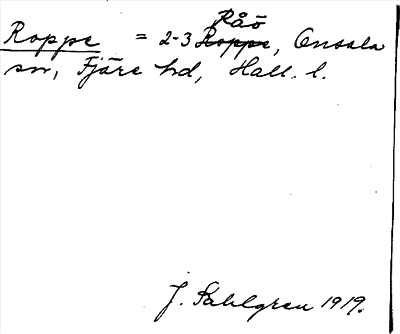 Råö
Roppe = 2-3 Roppe, Onsala
sn, Fjäre hd, Hall. l.
J. Sahlgren 1919.